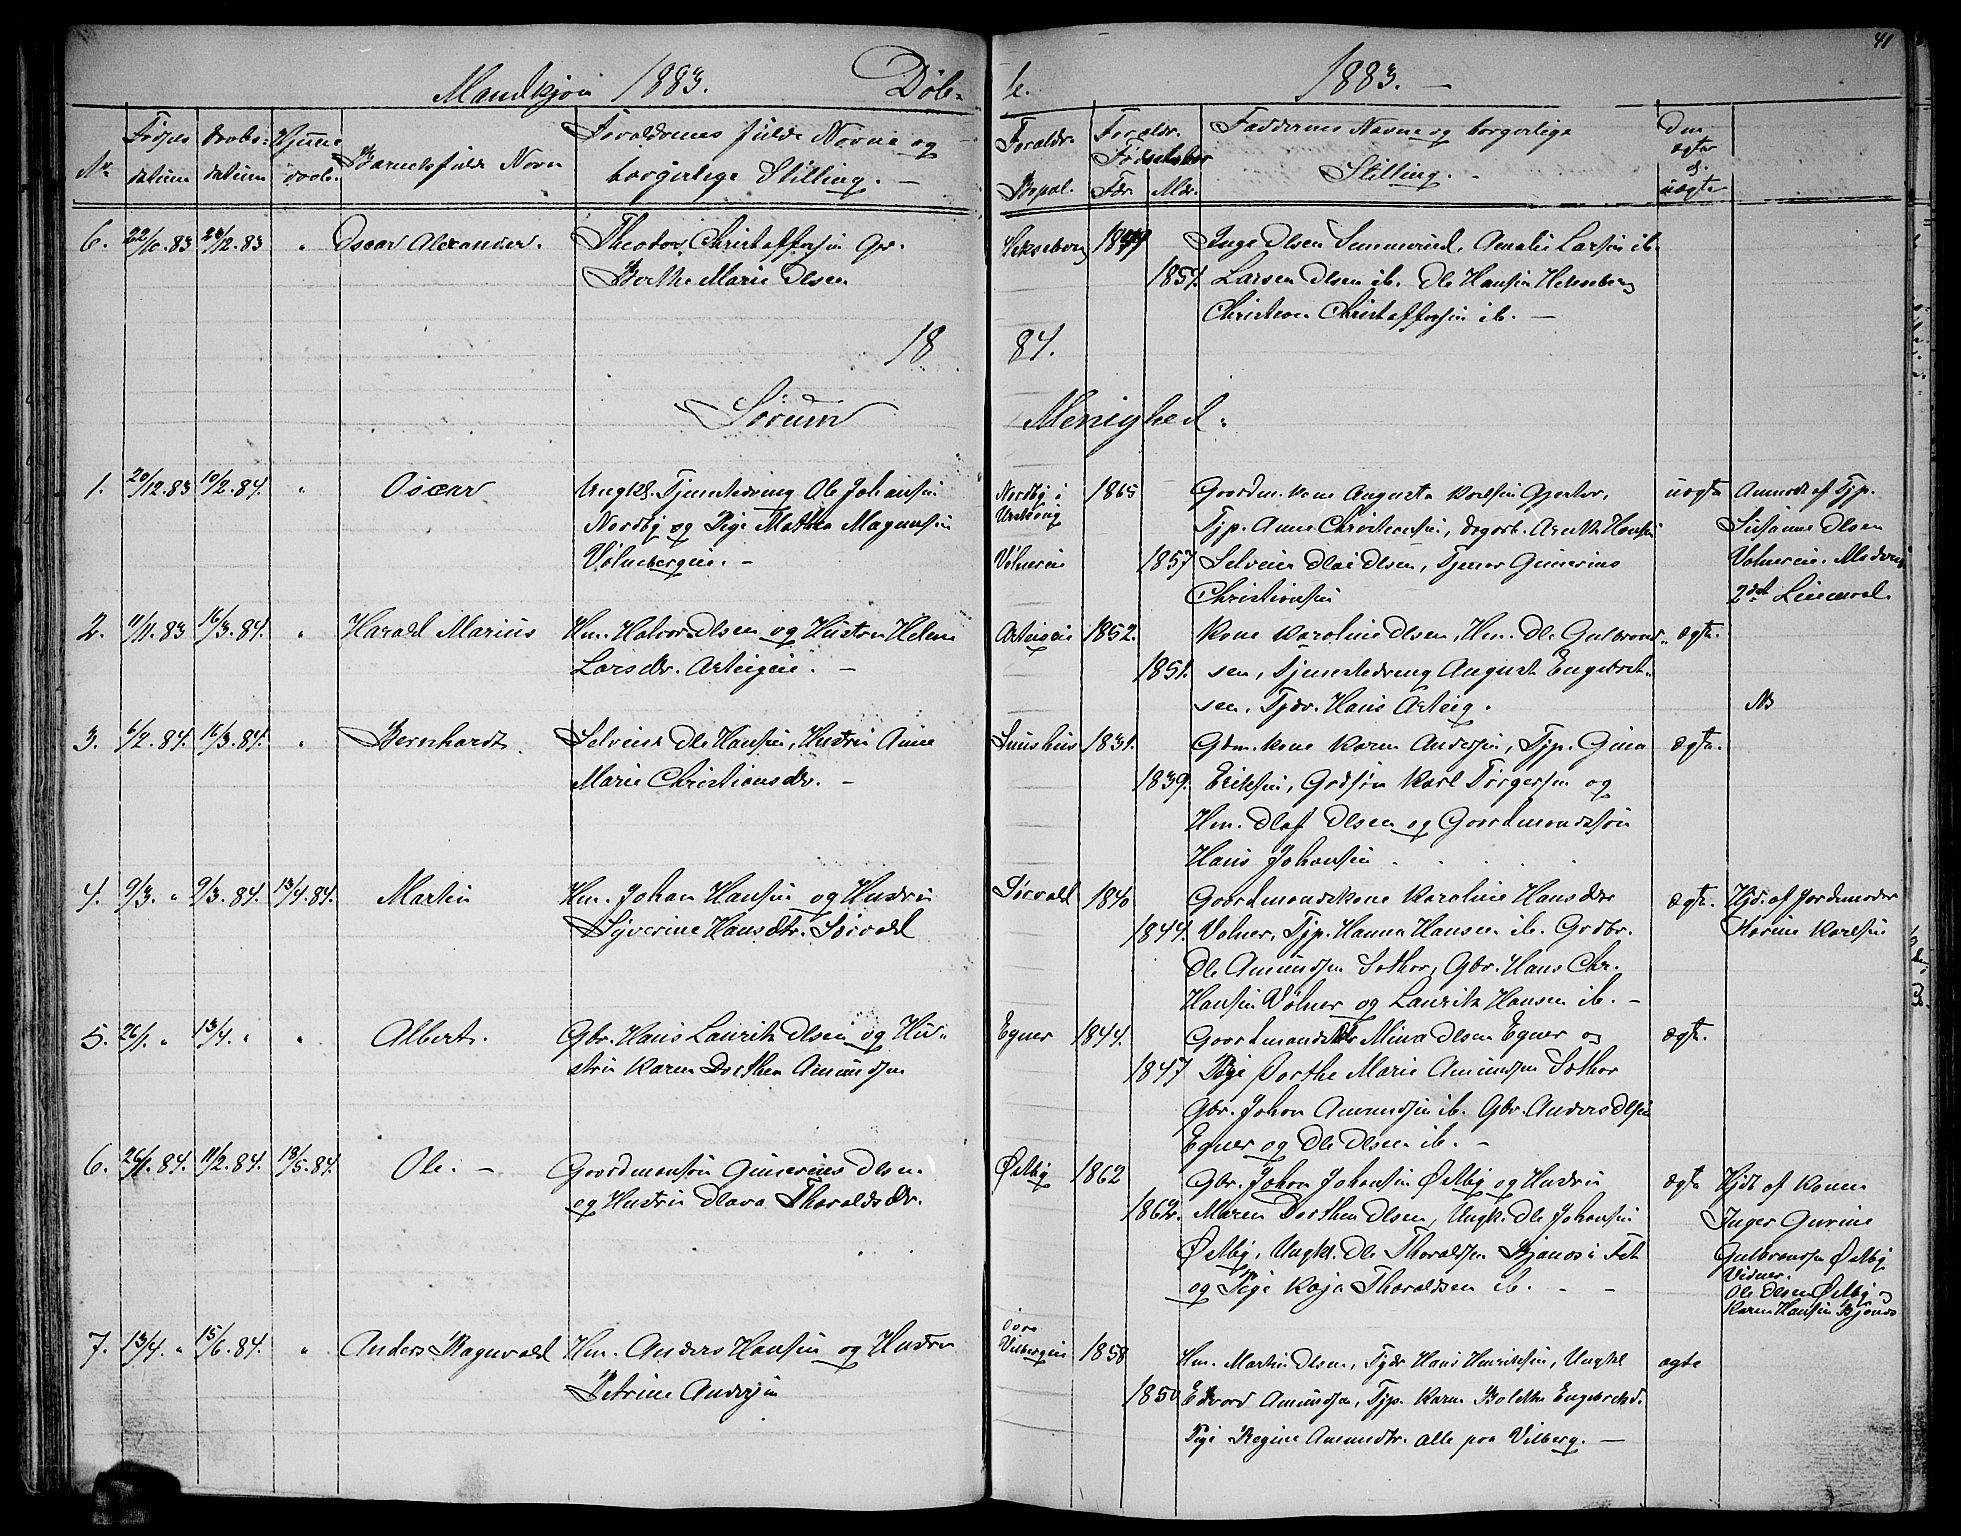 41
Mandkjøn 1883. Døb-
te. 1883. -
No
Fødsels
datum
Daabs-
datum
Hjemme
døbt.
Barnets fulde Navn
Forældrenes fulde Navne og
borgerlige Stilling. -
Forældr.
Bopæl.
Forældr.
Fødselsaar
Fdr. Mdr.
Faddernes Navne og borgerlige
Stilling. -
Om
ægte
el.
uægte
6. 22/10.83 26/12.83 " Oscar Alexander. Theodor Christoffersen Gr.
Berthe Marie Olsen
Hekseberg 1849 Inge Olsen Sundsrud, Amalie Larsen ib.
1857. Larsen Olsen ib. Ole Hansen Hekseberg
Christian Christoffersen ib. -
18 84.
Sørum Menighed.
1. 20/12.83 10/2.84. " Oscar Ungkl. Tjenestedreng Ole Johansen
Nordby og Pige Mathea Magnussen
Vølnebergeie. -
Nordby i
Urskoug
1865 Gaardm. kone Augusta Karlsen Gjerhor,
Tjp. Anne Christensen, Dagarb. Arnt Hansen
Vølnereie 1857 Selveier Olai Olsen, Tjener Gunerius
Christiansen
uægte Anmeldt af Tjp.
Susanne Olsen
Volnereie. Moderens
2det Leiermaal.
2. 11/11.83 16/3.84. " Harald Marius Hm. Halvor Olsen og Hustru Helene
Larsdr. Asteigeie. -
Asteigeie 1852. Kone Karoline Olsen, Hm. Ol. Gulbrand-
1851. sen, Tjenestedreng August Engebret-
sen, Tjdr. Hans Asteig.
ægte.
NB
3. 6/2.84. 16/3.84. " Bernhardt. Selveier Ole Hansen, Hustru Anne
Marie Christiansdr. -
Suushus 1831. Gbm. kone Karen Andersen, Tjp. Gina
1839. Eriksen, Grdsøn Karl Torgersen og
Hm. Olaf Olsen og Gaardmandssøn
Hans Johansen
ægte.
4. 9/3. " 9/3.84. 13/4.84. Martin Hm. Johan Hansen og Hustru
Syverine Hansdtr. Sørvald
Sørvald 1840 Gaardmandskone Karoline Hansdtr
1844. Volner, Tjp. Hanna Hansen ib. Grdbr.
Ole Amundsen Sothor, Gbr. Hans Chr.
Hansen Vølner og Lauritz Hansen ib. -
ægte. Hjd. af Jordemoder
Karine Karlsen
5. 26/1. " 13/4. " " Albert. Gbr. Hans Lauritz Olsen og Hu-
stru Karen Dorthea Amundsen
Egner 1844. Gaardmandsdtr Mina Olsen Egner og
1847 Pige Dorthe Marie Amundsen Sothor
Gbr. Johan Amundsen ib. Gbr. Anders Olsen
Egner og Ole Olsen ib. -
ægte.
6. 26/1.84. 11/2.84. 18/5.84. Ole. - Gaardmandsøn Gunerius Olsen
og Hustru Olava Thoraldsdr.
Østby 1862 Gbr. Johan Johansen Østby og Hustru
1862. Maren Dorthea Olsen, Ungk. Ole Johansen
Østby, Ungkl. Ole Thoraldsen Bjanes i Fet
og Pige Kaja Thoraldsen ib. - -
ægte Hjdt af Konen
Inger Gurine
Gulbransen Østby
Vidner.
Ole Olsen Østby og
Karen Hansen Bjanes
7. 13/4. " 15/6.84. " Anders Ragnvald Hm. Anders Hansen og Hustru
Petrine Andersen
øvre
Vilbergeie 1858 Hm. Martin Olsen, Tjdr Hans Henriksen, Ungkl
1850 Edvard Amundsen, Tjp. Karen Bolette Engebretsd.
Pige Regine Amundtr. alle paa Vilberg. -
ægte